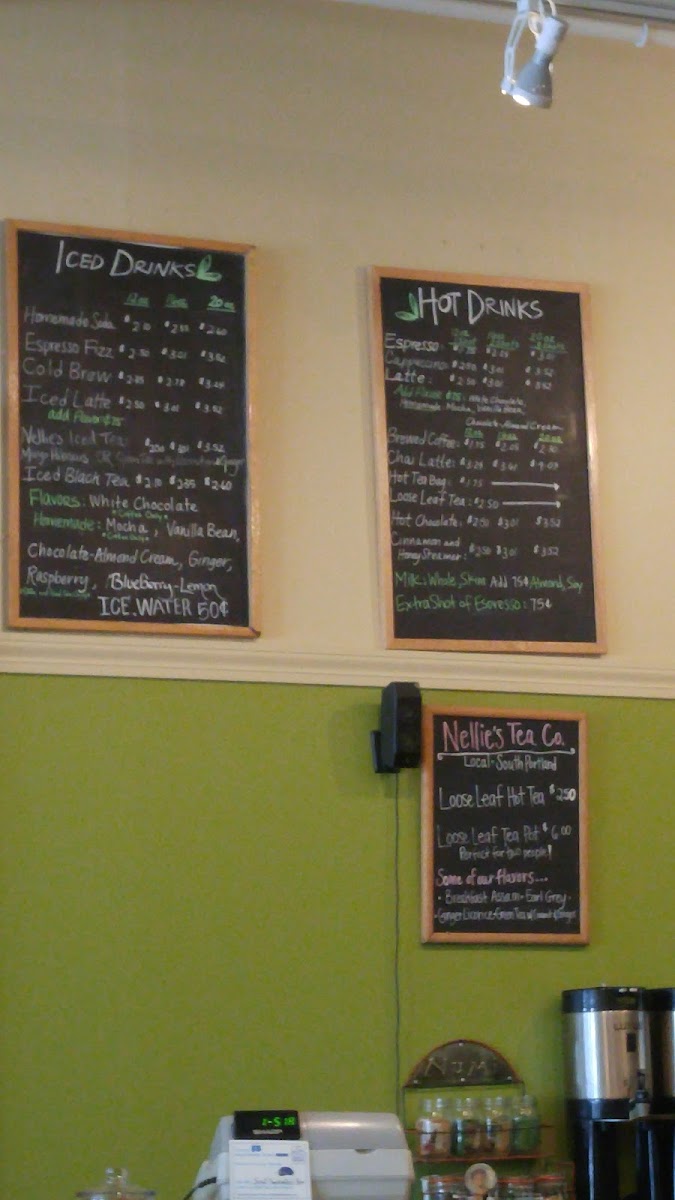 ICED DRINKS
12 oz 16 oz 20 oz
Homemade Soda $2.10 $2.35 $2.60
Espresso Fizz $2.50 $3.01 $3.52
Cold Brew $2.78 $3.49
Iced Latte $2.50 $3.01 $3.52
add flavor $.75
Nellie's Iced Tea $3.52
Mango Hibiscus OR Green Tea
Iced Black Tea $2.10 $2.35 $2.60
Flavors: White Chocolate
• Coffee Only •
Homemade: Mocha, Vanilla Bean,
• Coffee Only •
Chocolate-Almond Cream, Ginger,
Raspberry, BlueBerry-Lemon
ICE.WATER 50¢
HOT DRINKS
Espresso: $3.01
Cappuccino: $3.01 $3.52
Latte: $2.50 $3.01 $3.52
Add Flavor $.75: White Chocolate,
Homemade Mocha, Vanilla Bean,
Chocolate-Almond Cream
12oz 16oz 20oz
Brewed Coffee:
Chai Latte: $3.29
Hot Tea Bag: $1.75
Loose Leaf Tea: $2.50
Hot Chocolate: $2.50 $3.01 $3.52
Cinnamon and
Honey Steamer: $2.50 $3.01 $3.52
Milk: Whole, Skim Add 75¢ Almond, Soy
Extra Shot of Espresso: 75¢
Nellie's Tea Co.
Local-South Portland
Loose Leaf Hot Tea $2.50
Loose Leaf Tea Pot $6.00
Perfect for two people!
Some of our flavors...
• Breakfast Assam • Earl Grey •
• Ginger Licorice • Green Tea w/ Coconut & Ginger
1-518
SHARP